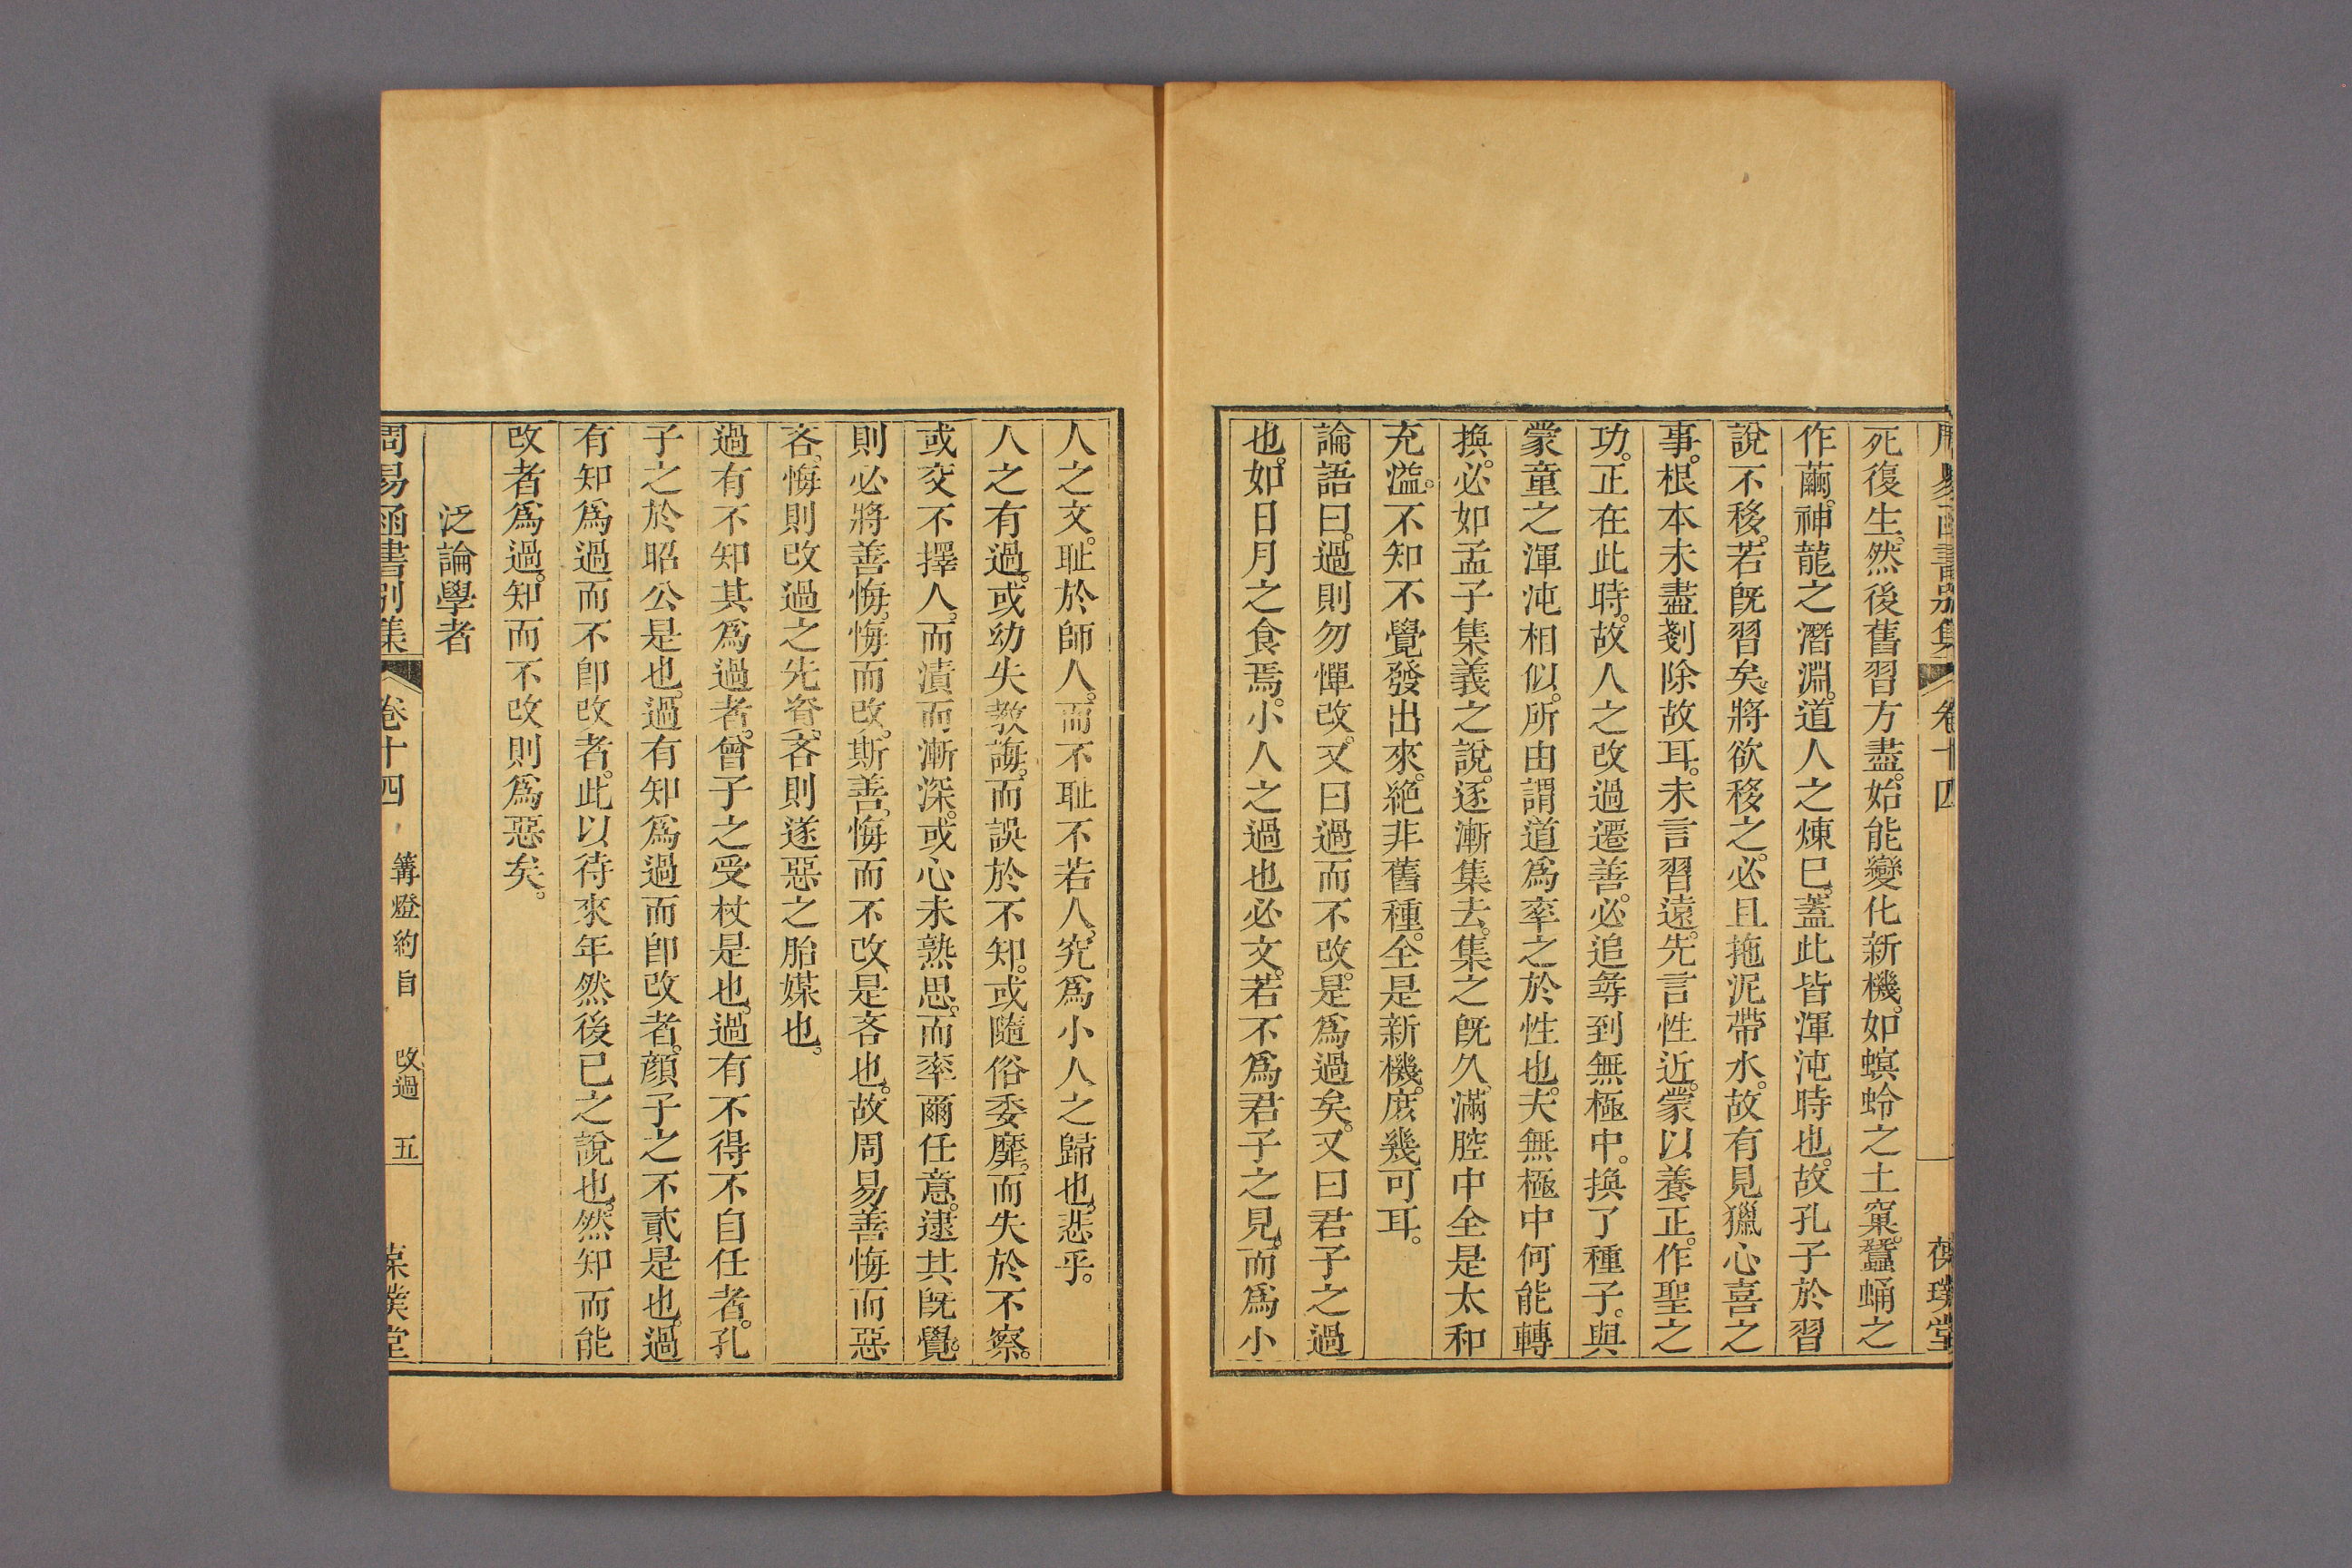 周易函書別集 卷十四 葆璞堂
死復生。然後舊習方盡。始能變化新機。如螟蛉之土窠。蠶蛹之
作繭。神龍之潛淵。道人之煉巳。蓋此皆渾沌時也。故孔子於習
說不移。若旣習矣。將欲移之。必且拖泥帶水。故有見獵心喜之
事。根本未盡剗除故耳。未言習遠。先言性近。蒙以養正。作聖之
功。正在此時。故人之改過遷善。必追尋到無極中。換了種子。與
蒙童之渾沌相似。所由謂道爲率之於性也。夫無極中何能轉
換。必如孟子集義之說。逐漸集去。集之旣久。滿腔中全是太和
充溢。不知不覺發出來。絕非舊種。全是新機。庶幾可耳。
論語曰。過則勿憚改。又曰過而不改。是爲過矣。又曰君子之過
也。如日月之食焉。小人之過也必文。若不爲君子之見。而爲小
人之文。耻於師人。而不耻不若人。究爲小人之歸也。悲乎。
人之有過。或幼失教誨。而誤於不知。或隨俗委靡。而失於不察。
或交不擇人。而漬而漸深。或心未熟思。而率爾任意。逮其旣覺。
則必將善悔。悔而改。斯善。悔而不改是吝也。故周易善悔而惡
吝。悔則改過之先資。吝則遂惡之胎媒也。
過有不知其爲過者。曾子之受杖是也。過有不得不自任者。孔
子之於昭公是也。過有知爲過而卽改者。顏子之不貳是也。過
有知爲過而不卽改者。此以待來年然後已之說也。然知而能
改者爲過。知而不改則爲惡矣。
泛論學者
周易函書別集 卷十四 篝燈約旨 改過 五 葆璞堂